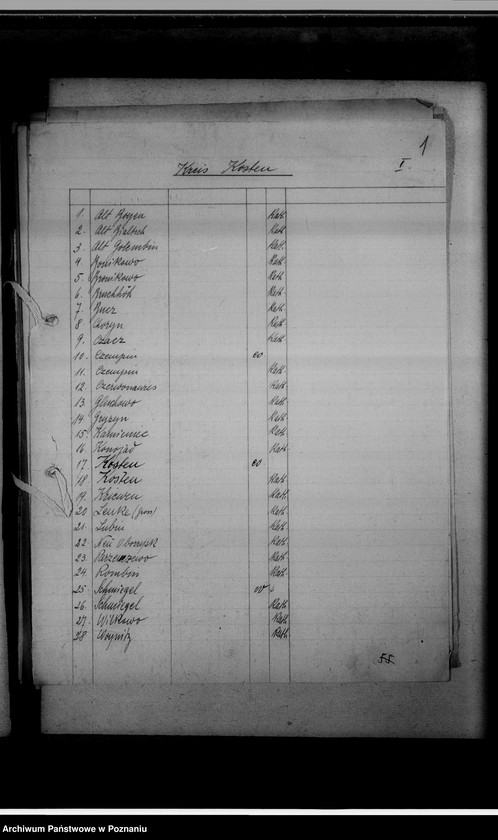 1
Kreis Kosten I.
1. Alt Boyen Kath.
2. Alt Bialtsch Kath.
3. Alt Golembin Kath.
4. Bonikowo Kath.
5. Bronikowo Kath.
6. Kath.
7. Bucz Kath.
8. Choryn Kath.
9. Czacz Kath.
10. Czempin ev
11. Czempin Kath.
12. Kath.
13. Gluchowo Kath.
14. Gryzyn Kath.
15. Kamieniec Kath.
16. Konojad Kath.
17. Kosten ev
18. Kosten Kath.
19. Kriewen Kath.
20. Lenke (pos) Kath.
21. Lubin Kath.
22. Neu Kath.
23. Parzenzewo Kath.
24. Rombin Kath.
25. Schmiegel ev
26. Schmiegel Kath.
27. Wilkowo Kath.
28. Woynitz Kath.
Archiwum Państwowe w Poznaniu